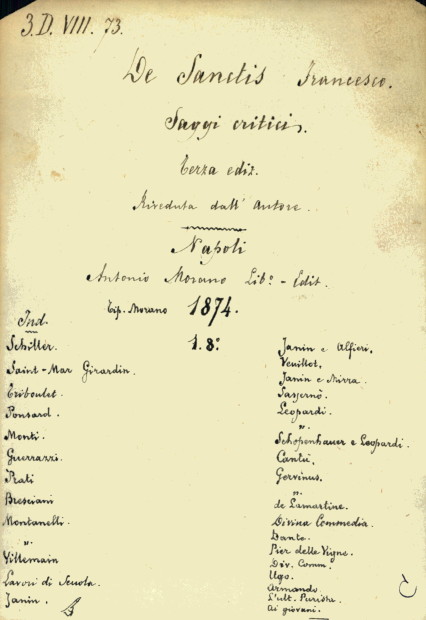 3. D. VIII. 73.
De Sanctis Francesco.
Saggi critici.
Terza ediz.
Riveduta dall' Autore.
Napoli
Antonio Morano Lib.º - Edit.
Tip. Morano 1874.
Ind.
1. 8.º
Schiller.
Saint-Mar Girardin.
Triboulet.
Ponsard.
Monti.
Guerrazzi.
Prati
Bresciani
Montanelli.
"
Villemain
Lavori di Scuola.
Janin.
Janin e Alfieri.
Veuillot.
Janin e Mirra.
Sasernò.
Leopardi.
"
Schopenhauer e Leopardi.
Cantù.
Gervinus.
"
de Lamartine.
Divina Commedia.
Dante.
Pier delle Vigne.
Div. Comm.
Ugo.
Armando.
L'ult. Purista.
Ai giovani.